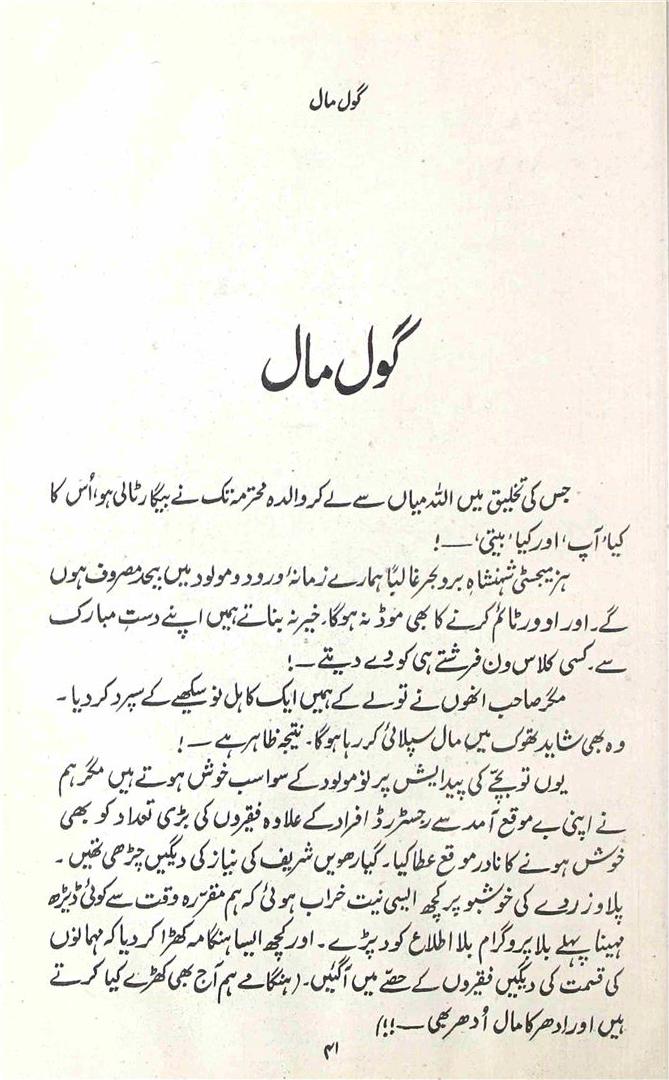 گول مال
گول مال
جس کی تخلیق میں اللہ میاں سے لے کر والدہ محترمہ تک نے بیگار ٹالی ہو، اُس کا
کیا 'آپ' اور کیا 'بیتی' ـــ!
ہزمیجسٹی شہنشاہِ بروبحر غالباً ہمارے زمانۂ ورود و مولود میں بیحد مصروف ہوں
گے۔ اور اوور ٹائم کرنے کا بھی موڈ نہ ہوگا۔ خیر نہ بناتے ہمیں اپنے دستِ مبارک
سے۔ کسی کلاس ون فرشتے ہی کو دے دیتے ـــ!
مگر صاحب انھوں نے تو لے کے ہمیں ایک کاہل نوسیکھیے کے سپرد کر دیا۔
وہ بھی شاید تھوک میں مال سپلائی کر رہا ہوگا۔ نتیجہ ظاہر ہے ـــ!
یوں تو بچّے کی پیدایش پر نومولود کے سوا سب خوش ہوتے ہیں مگر ہم
نے اپنی بے موقع آمد سے رجسٹرڈ افراد کے علاوہ فقیروں کی بڑی تعداد کو بھی
خوش ہونے کا نادر موقع عطا کیا۔ گیارھویں شریف کی نیاز کی دیگیں چڑھی تھیں۔
پلاو زردے کی خوشبو پر کچھ ایسی نیت خراب ہوئی کہ ہم مقرّرہ وقت سے کوئی ڈیڑھ
مہینا پہلے بلا پروگرام بلا اطلاع کود پڑے۔ اور کچھ ایسا ہنگامہ کھڑا کر دیا کہ مہمانوں
کی قسمت کی دیگیں فقیروں کے حصّے میں آگئیں۔ (ہنگامے ہم آج بھی کھڑے کیا کرتے
ہیں اور ادھر کا مال اُدھر بھی ـــ!!)
۴۱